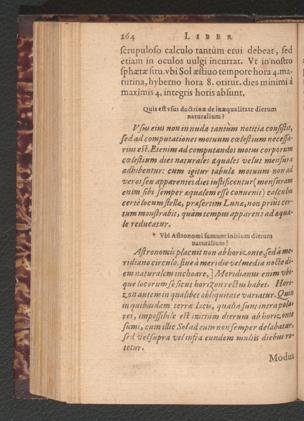 264 LIBER
scrupuloso calculo tantùm erui debeat, sed
etiam in oculos uulgi incurrat. Vt in nostro
sphæræ situ, vbi Sol æstiuo tempore hora 4. ma-
tutina, hyberno hora 8. oritur, dies minimi à
maximis 4. integris horis absunt.
Quis est vsus doctrinæ de inæqualitate dierum
naturalium?
Vsus eius non in nuda tantùm notitia consistit,
sed ad computationes motuum cælestium necessa-
rius est. Etenim ad computandos motus corporum
cælestium dies naturales æquales velut mensura
adhibentur: cum igitur tabula motuum non ad
veros seu apparentes dies instituantur [mensuram
enim sibi semper æqualem esse conuenit] calculus
certè locum stellæ, præsertim Lunæ, non prius cer-
tum monstrabit, quàm tempus apparens ad æqua-
le reducatur.
* Vbi Astronomi sumunt initium dierum
naturalium?
Astronomis placuit non ab horizonte, sed à me-
ridiano circulo, siue à meridie vel media nocte di-
em naturalem inchoare. Meridianus enim vbi-
que locorum se sicut horizon rectus habet. Hori-
zon autem in qualibet obliquitate variatur. Quin
in quibusdam terræ locis, quales sunt intra pola-
res, impossibile est initium dierum ab horizonte
sumi, cum illic Sol ad eum non semper delabatur,
sed vel supra vel infra eundem multis diebus ro-
tetur.
Modus